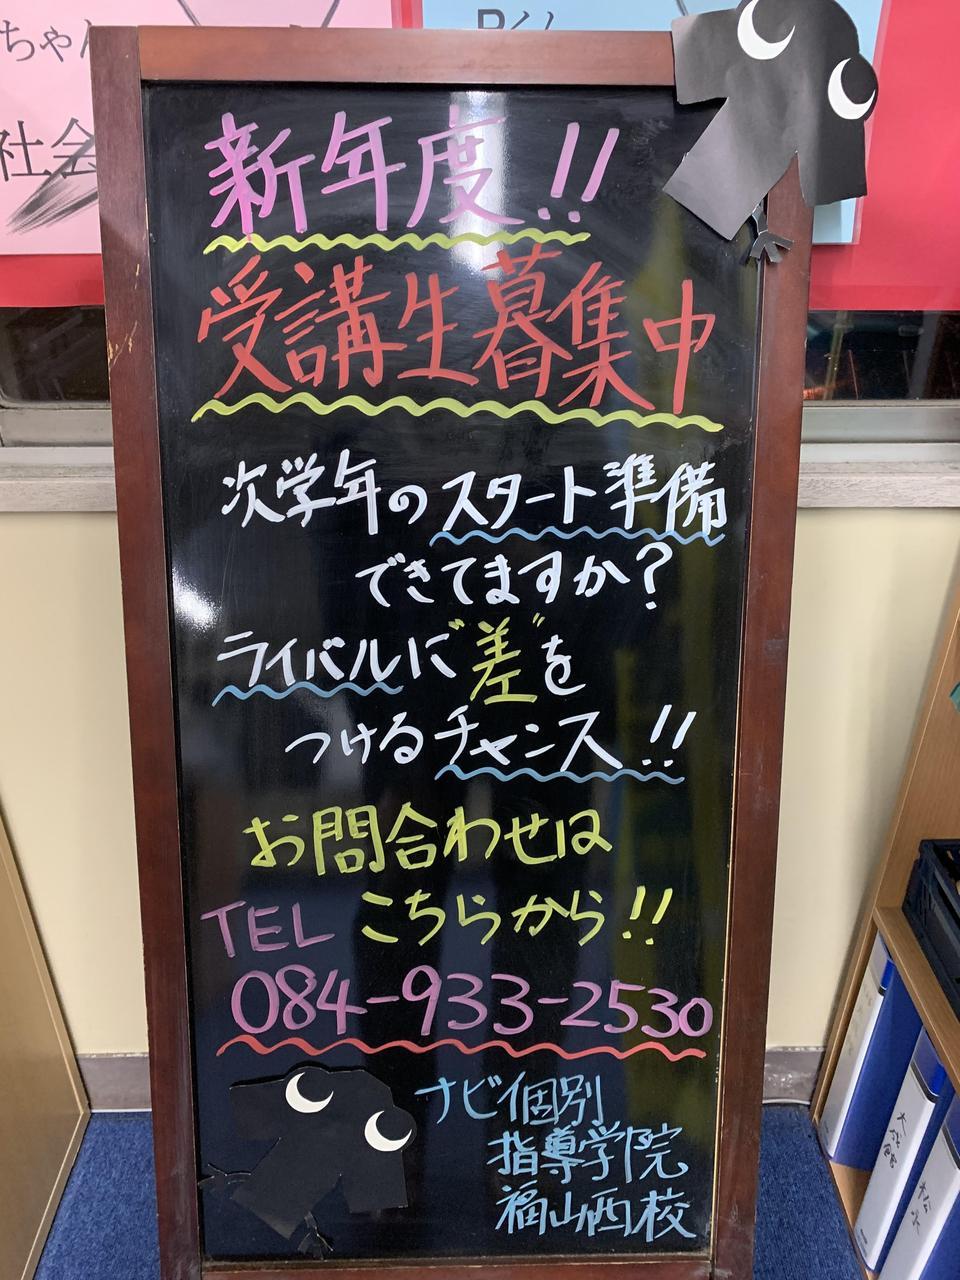 ちゃん
社会
新年度!!
受講生募集中
次学年のスタート準備
できてますか?
ライバルに"差"を
つけるチャンス!!
お問合わせは
TEL こちらから!!
084-933-2530
ナビ個別
指導学院
福山西校